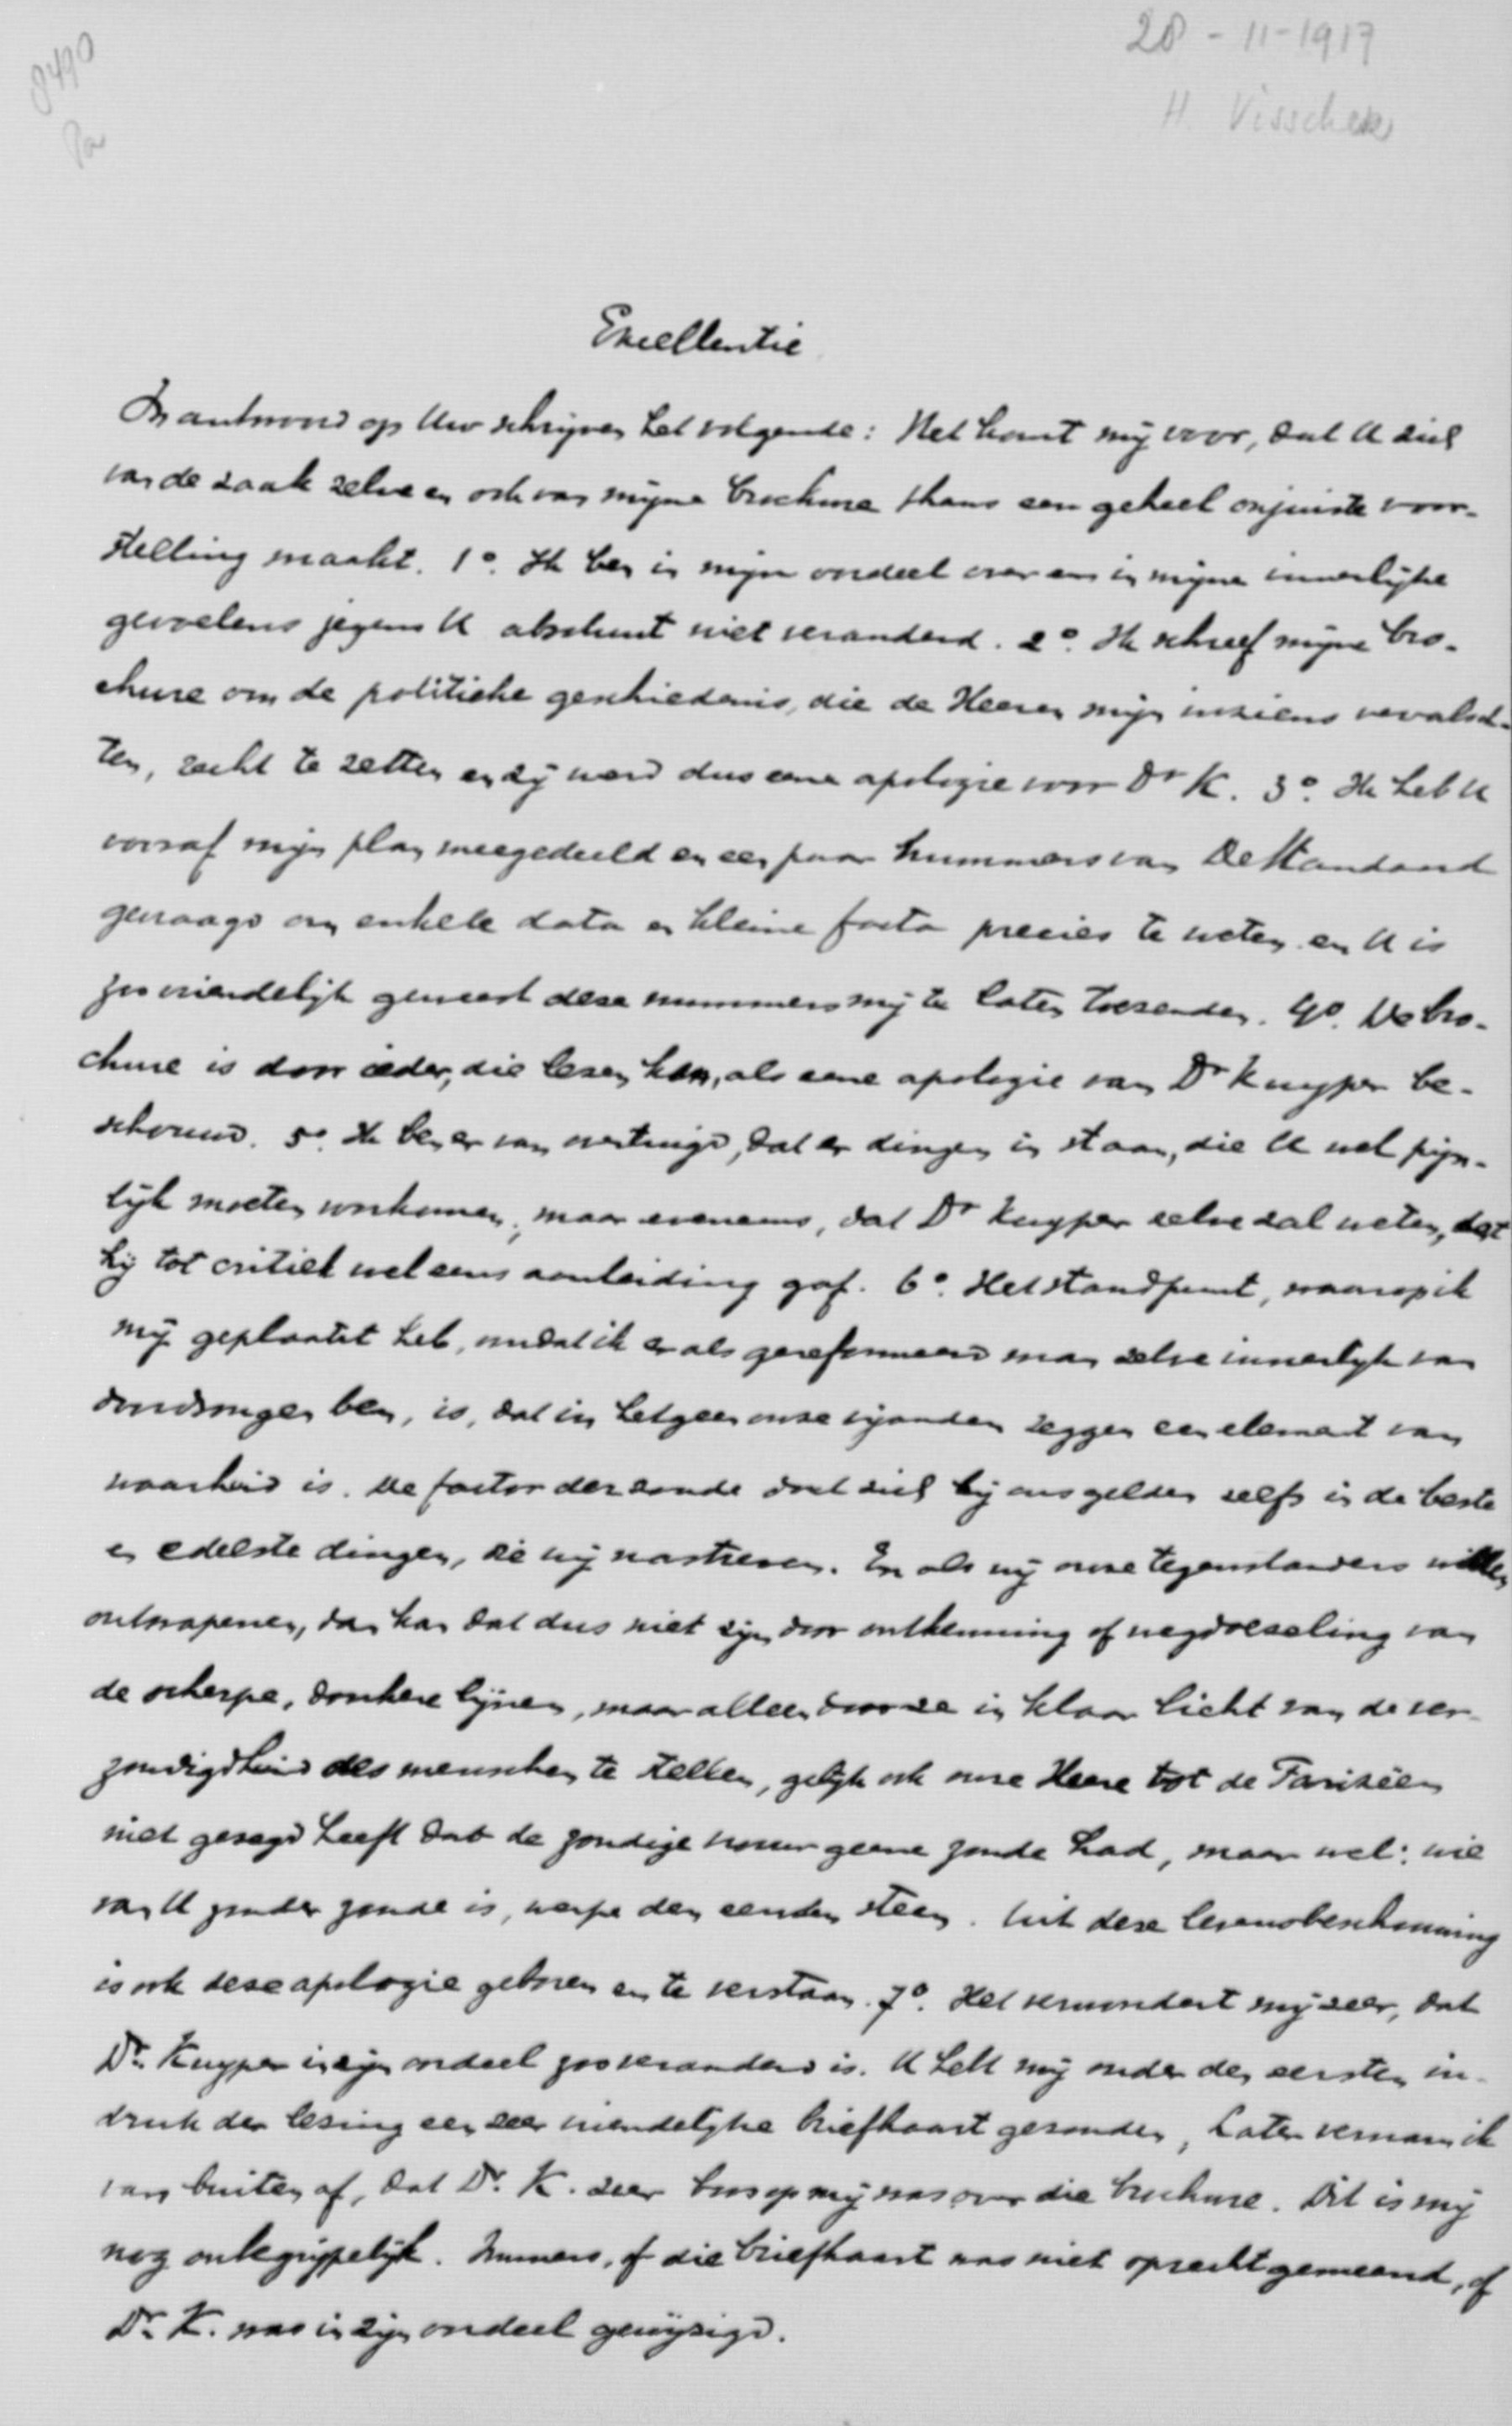 28-11-1917
H. Visscher
8490
Pa
Excellentie
In antwoord op Uw schrijven het volgende: Het komt mij voor, dat U zich
van de zaak zelve en ook van mijne brochure thans een geheel onjuiste voor-
stelling maakt. 1o. Ik ben in mijn oordeel over en in mijne innerlijke
gevoelens jegens U absoluut niet veranderd. 2o. Ik schreef mijne bro-
chure om de politieke geschiedenis, die de Heeren mijn inziens vervalsch-
ten, recht te zetten en zij werd dus eene apologie voor Dr K. 3o. Ik heb U
vooraf mijn plan meegedeeld en een paar nummers van De Standaard
gevraagd om enkele data en kleine facta precies te weten en U is
zoo vriendelijk geweest deze nummers mij te laten toezenden. 4o. De bro-
chure is door ieder, die lezen kan, als eene apologie van Dr Kuyper be-
schouwd. 5o. Ik ben er van overtuigd, dat er dingen in staan, die U wel pijn-
lijk moeten voorkomen, maar eveneens, dat Dr Kuyper zelve zal weten, dat
hij tot critiek wel eens aanleiding gaf. 6o. Het standpunt, waarop ik
mij geplaatst heb, omdat ik er als gereformeerd man zelve innerlijk van
doordrongen ben, is, dat in hetgeen onze vijanden zeggen een element van
waarheid is. De factor der zonde doet zich bij ons gelden zelfs in de beste
en edelste dingen, die wij nastreven. En als wij onze tegenstanders willen
ontwapenen, dan kan dat dus niet zijn door ontkenning of wegdoezeling van
de scherpe, donkere lijnen, maar alleen door ze in klaar licht van de ver-
zondigdheid des menschen te stellen, gelijk ook onze Heere tot de Farizëen
niet gezegd heeft dat de zondige vrouw geene zonde had, maar wel: wie
van U zonder zonde is, werpe den eersten steen. Uit deze levensbeschouwing
is ook deze apologie geboren en te verstaan. 7o. Het verwondert mij zeer, dat
Dr. Kuyper in zijn oordeel zoo veranderd is. U hebt mij onder den eersten in-
druk der lezing een zeer vriendelijke briefkaart gezonden, Later vernam ik
van buiten af, dat Dr. K. zeer boos op mij was over die brochure. Dit is mij
nog onbegrijpelijk. Immers, of die briefkaart was niet oprecht gemeend, of
Dr. K. was in zijn oordeel gewijzigd.